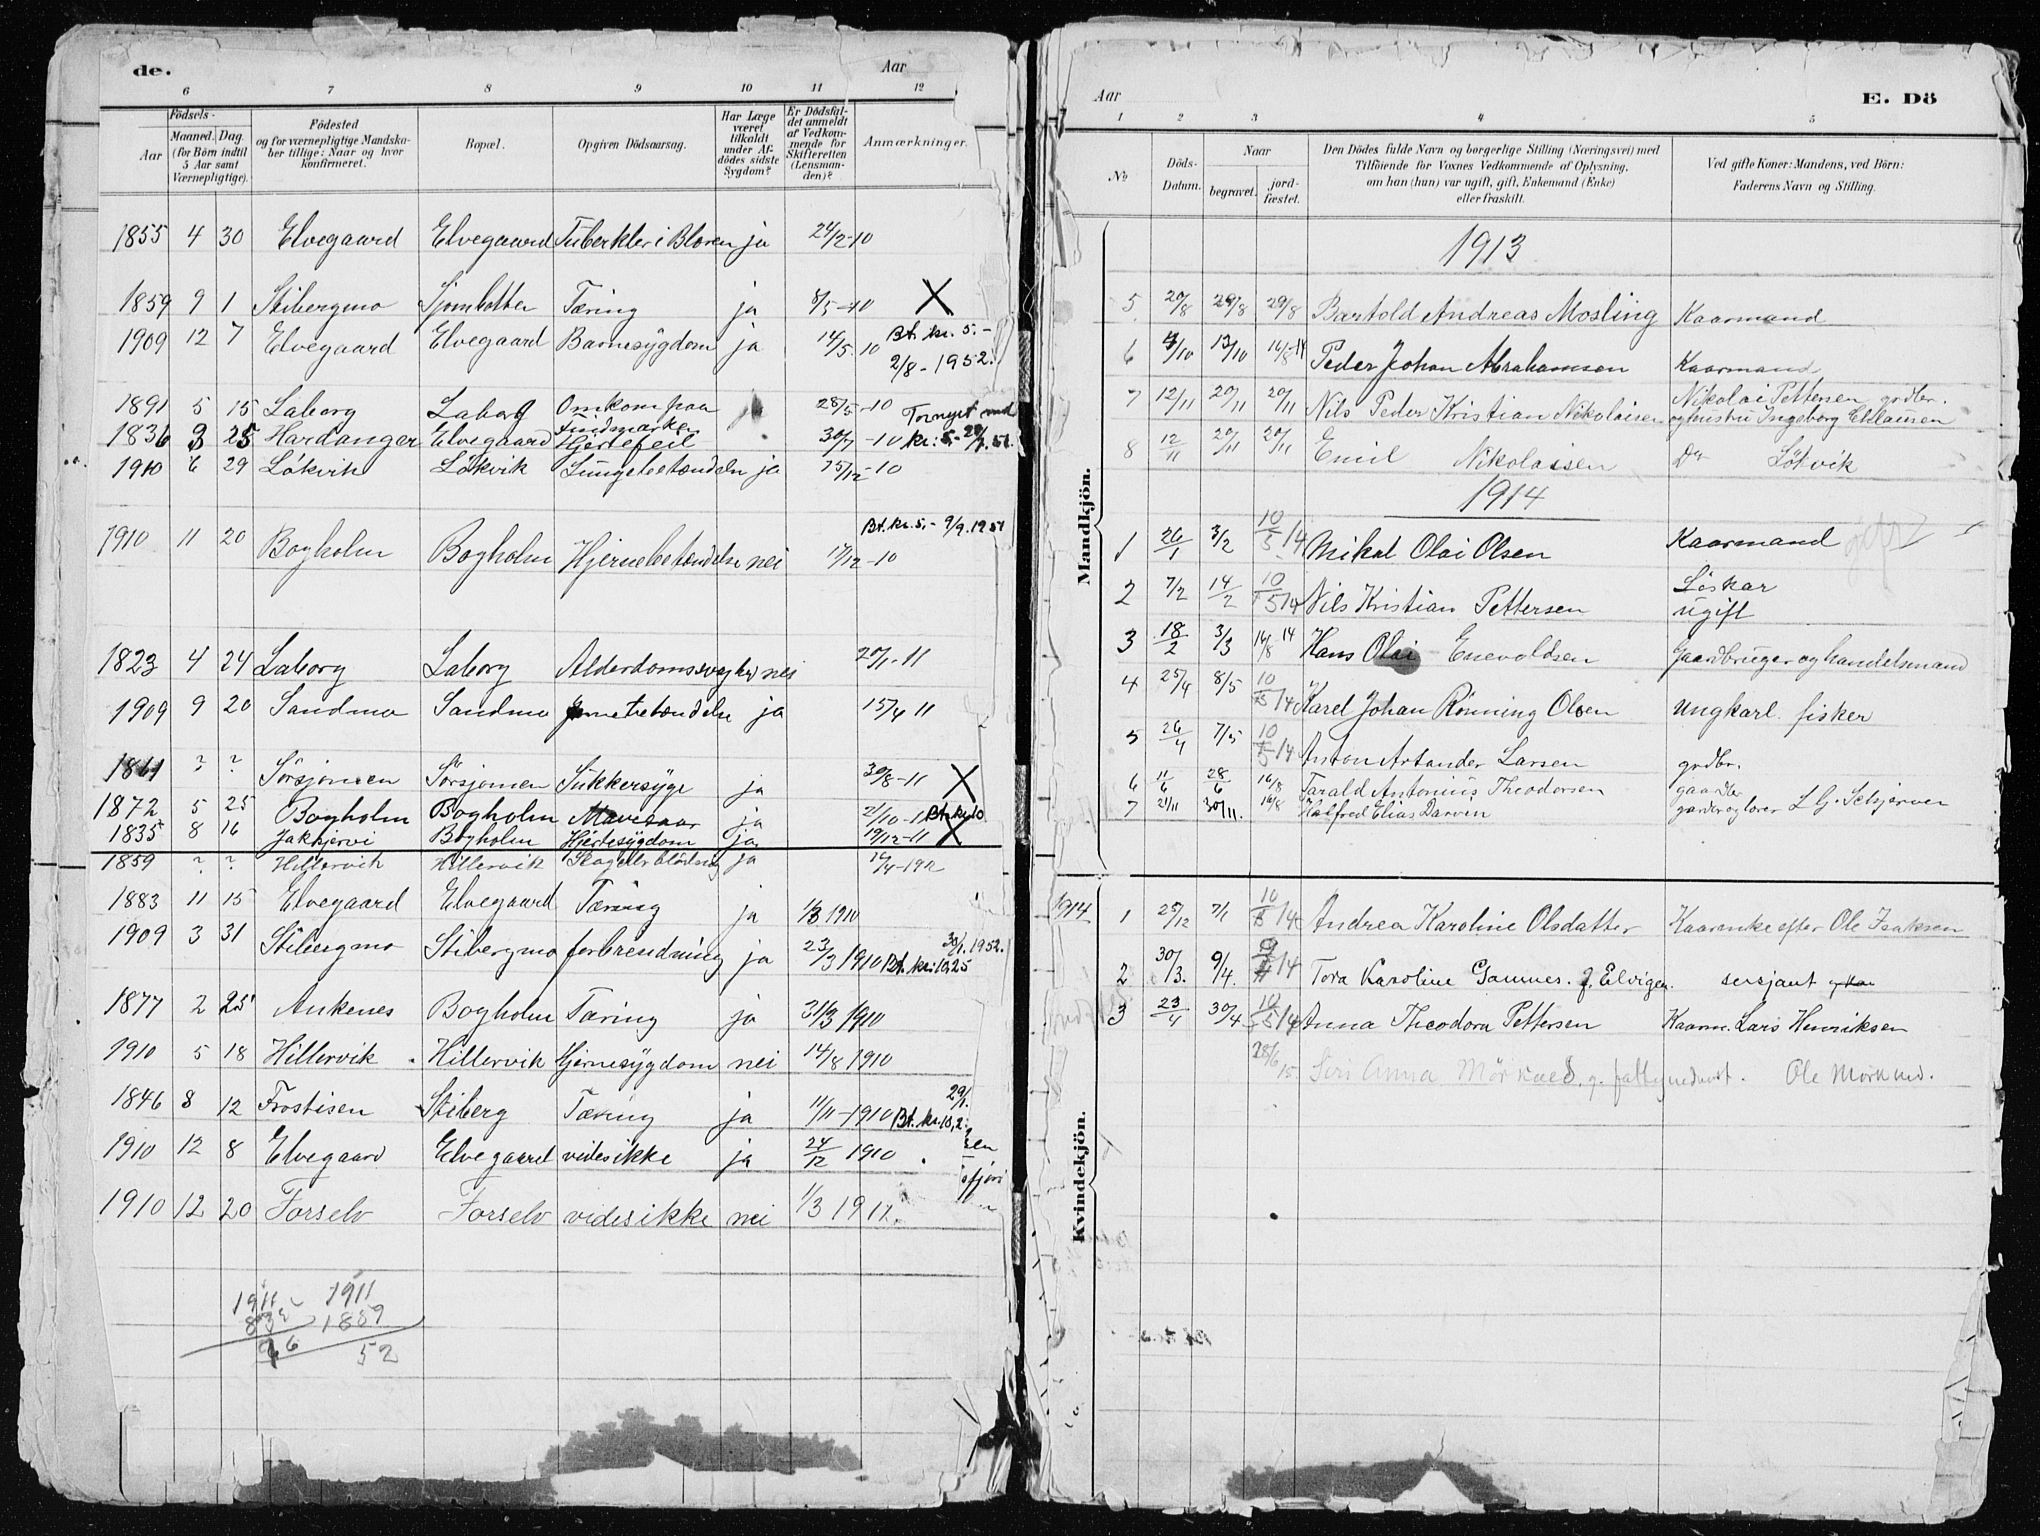 de.
Aar
6 7 8 9 10 11 12
Fødsels-
Aar
Maaned. Dag.
(for Börn indtil 5 Aar samt Værnepligtige).
Födested
og for værnepligtige Mandska-
ber tillige: Naar og hvor
konfirmeret.
Bopæl.
Opgiven Dödsaarsag.
Har Læge
været
tilkaldt
under Af-
dödes sidste
Sygdom?
Er Dödsfal-
det anmeldt
af Vedkom-
mende for
Skifteretten
(Lensman-
den)?
Anmærkninger.
1855 4 30 Elvegaard Elvegaard Tuberkler i Bloren ja 24/2-10
1859 9 1 Stibergmo Sjombotten Tæring ja 8/5-10 X
1909 12 7 Elvegaard Elvegaard Barnesygdom ja 14/5-10 Bt. kr. 5.-
2/8-1952.
1891 5 15 Laberg Laberg Omkom paa
Indmarken 28/5-10 Fornyet med
1836 3 25 Hardanger Elvegaard Hjertefeil 30/7-10 kr: 5.-
1910 6 29 Lökvik Lökvik Lungebetændelse ja 15/12-10
Bt. kr. 5.- 9/9.1951
1910 11 20 Bogholm Bogholm Hjernebetændelse nei 17/12-10
1823 4 24 Laberg Laberg Alderdomssvaghed nei 20/1-11
1909 9 20 Sandmo Sandmo ja 15/4 11
1861 ? ? Sörsjomen Sörsjomen Sukkersyge ja 30/8-11 X
1872 5 25 Bogholm Bogholm Mavesaar ja 2/10-11
1835 8 16 Bogholm Hjertesygdom ja 19/12-11 X
1859 ? ? Hillervik Hillervik ja
1883 11 15 Elvegaard Elvegaard Tæring ja 1/3 1910
1909 3 31 Stibergmo Stibergmo forbrænding ja 23/3 1910 Bt. kr. 10,25
30/1.1952.
1877 2 25 Ankenes Bogholm Tæring ja 31/3 1910
1910 5 18 Hillervik Hillervik Hjernesygdom nei 14/8 1910
1846 8 12 Frostisen Stiberg Tæring ja 11/11-1910 Bt. kr. 10,2
29/1.
1910 12 8 Elvegaard Elvegaard videsikke ja 24/12 1910
1910 12 20 Forselv Forselv videsikke nei 1/3 1912.
1911 1911
1859
52
Aar
E. Dö
1 2 3 4 5
No
Döds-
Datum.
Naar
begravet.
jord-
fæstet.
Den Dödes fulde Navn og borgerlige Stilling (Næringsvei) med
Tilföiende for Voxnes Vedkommende af Oplysning,
om han (hun) var ugift, gift, Enkemand (Enke)
eller fraskilt.
Ved gifte Koner: Mandens, ved Börn:
Faderens Navn og Stilling.
Mandkjön.
1913
5 20/8 29/8 29/8 Bartold Andreas Mosling Kaarmand
6 4/10 13/10 16/8-14 Peder Johan Abrahamsen Kaarmand
7 12/11 20/11 20/11 Nils Peder Kristian Nikolaisen Nikolai Pettersen grdbr.
og hustru Ingeborg Ellausen
8 12/11 20/11 20/11 Emil Nikolaisen Do Lökvik
1914
1 26/1 3/2 10/5 14 Mikal Olai Olsen Kaarmand
2 7/2 14/2 10/5 14 Nils Kristian Pettersen Löskar
ugift
3 18/2 3/3 16/8 14 Hans Olai Enevoldsen Gaardbruger og handelsmand
4 25/4 8/5 10/5 14 Karel Johan Rönning Olsen Ungkarl. fisker
5 26/4 7/5 10/5 14 Anton Artander Larsen grdbr.
6 11/6 28/6 16/8 Tarald Antonius Theodorsen
7 21/11 30/11. 16/8 Halfred Elias Darvin L G. Schjerven
Kvindekjön.
1914
1 25/12 7/1 10/5 14 Andrea Karoline Olsdatter Kaarenke efter Ole Isaksen
2 30/3. 9/4. 14 Tora Karoline Gamnes. f. Elvigen. sersjant
3 23/4 30/4 10/5 14 Anna Theodora Pettersen Kaarm. Lars Henriksen
28/6 15 Siri Anna Mörkved, g. Ole Mörkved.